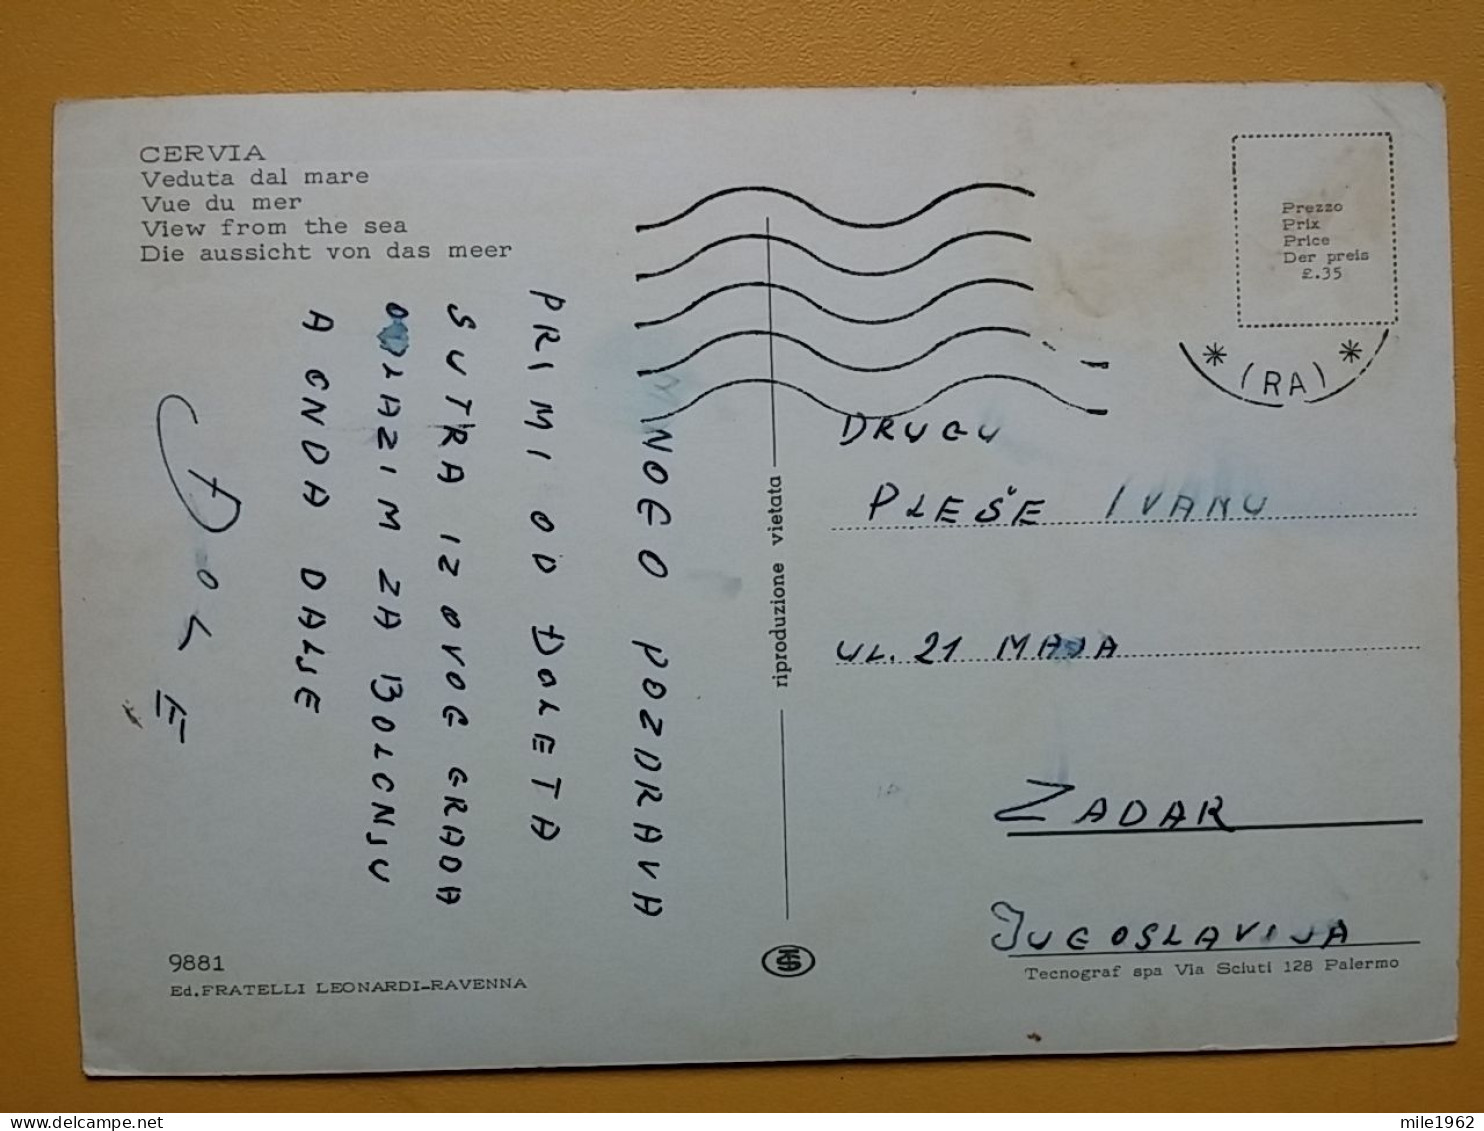 CERVIA
Veduta dal mare
Vue du mer
View from the sea
Die aussicht von das meer
Prezzo
Prix
Price
Der preis
£.35
* (RA) *
MNOGO POZDRAVA
PRIMI OD DOLETA
SUTRA IZ OVOG GRADA
ODLAZIM ZA BOLONJU
A ONDA DALJE
II
riproduzione vietata
DRUGU
PLEŠE IVANU
UL. 21 MAJA
ZADAR
JUGOSLAVIJA
9881
Ed.FRATELLI LEONARDI-RAVENNA
Tecnograf spa Via Sciuti 128 Palermo
mile1962